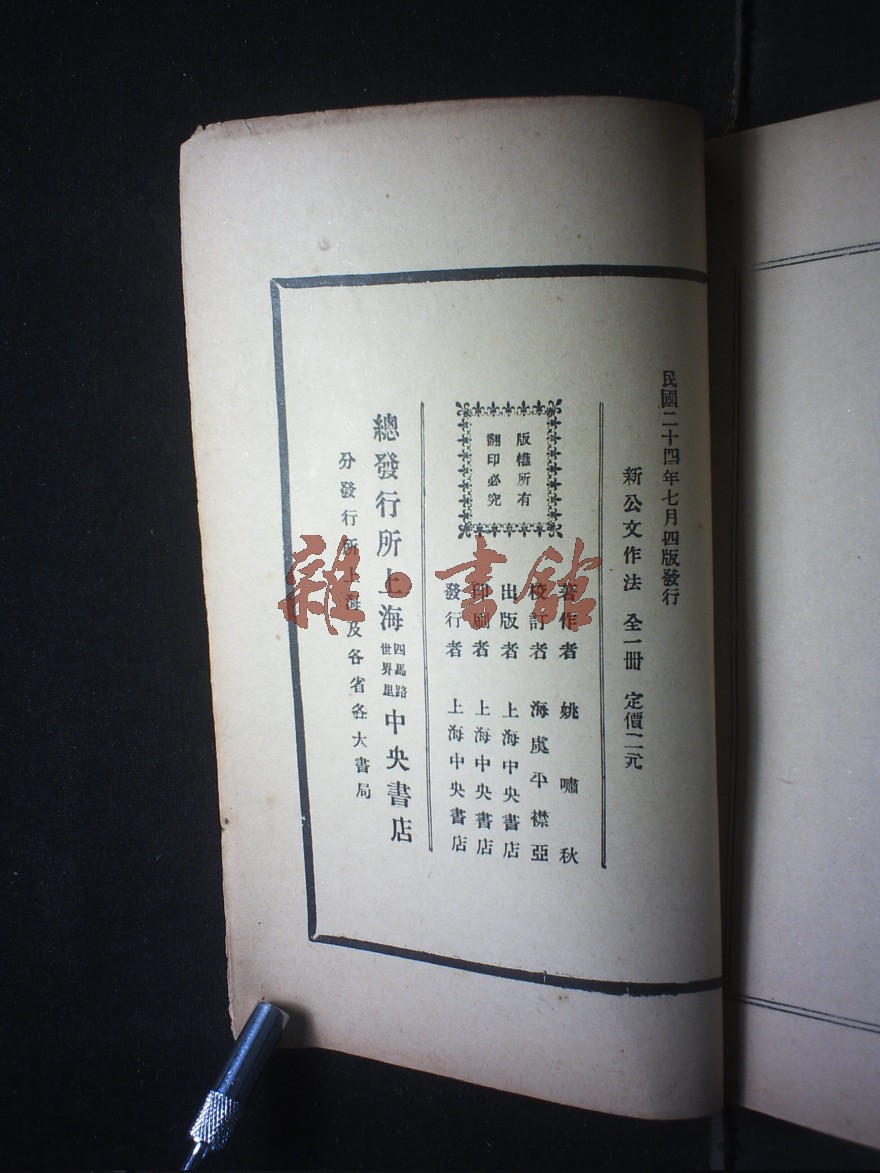 民國二十四年七月四版發行
新公文作法 全一冊 定價二元
版權所有
翻印必究
著作者 姚嘯秋
校訂者 海虞平襟亞
出版者 上海中央書店
印刷者 上海中央書店
發行者 上海中央書店
總發行所上海四馬路世界里中央書店
分發行所上海及各省各大書局
雜·書館